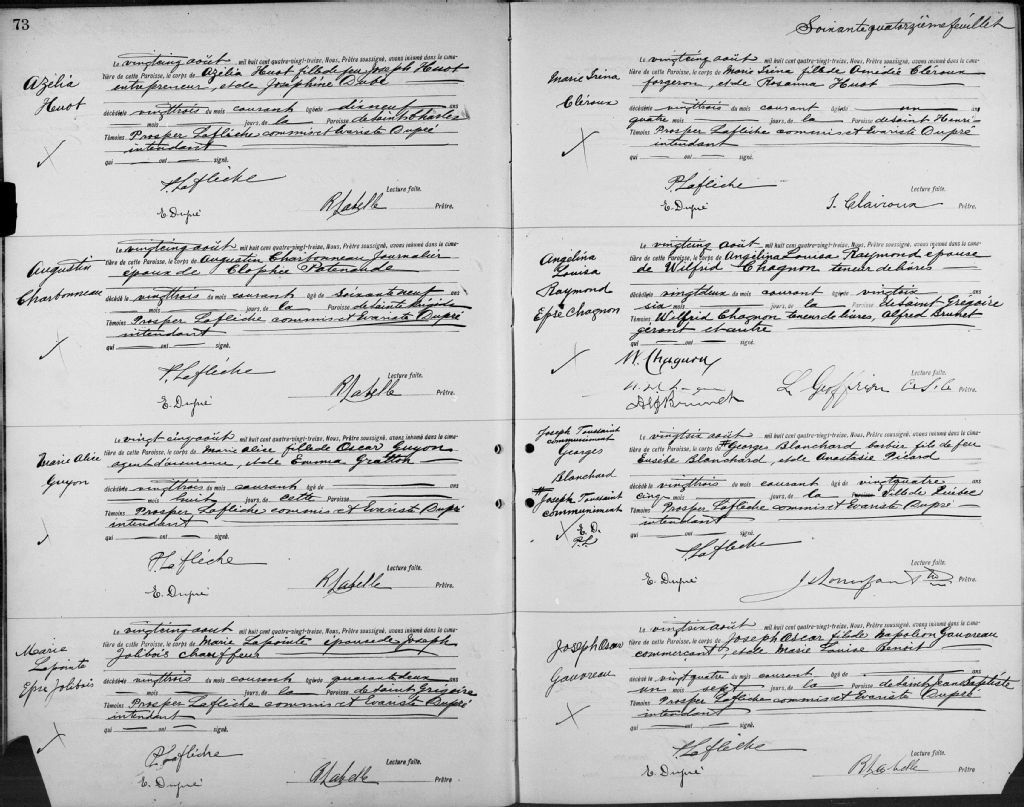 73
Azélia
Huot
Le vingtcinq août mil huit cent quatre-vingt-treize, Nous, Prêtre soussigné, avons inhumé dans le cime-
tière de cette Paroisse, le corps de Azélia Huot fille de feu Joseph Huot
entrepreneur, et de Joséphine Dubé
décédée le vingttrois du mois courant âgée de dixneuf ans
mois jours, de la Paroisse de Saint Charles
Témoins Prosper Laflèche commis et Evariste Dupré
intendant
qui — ont — signé.
P. Laflèche
Lecture faite.
E. Dupré
R Labelle
Prêtre.
Augustin
Charbonneau
Le vingtcinq août mil huit cent quatre-vingt-treize, Nous, Prêtre soussigné, avons inhumé dans le cime-
tière de cette Paroisse, le corps de Augustin Charbonneau Journalier
époux de Clophée Patenaude
décédé le vingttrois du mois courant âgé de soixante neuf ans
mois jours, de la Paroisse de Sainte Brigide
Témoins Prosper Laflèche commis et Evariste Dupré
intendant
qui — ont — signé.
P. Laflèche
Lecture faite.
E. Dupré
R Labelle
Prêtre.
Marie Alice
Guyon
Le vingt cinq août mil huit cent quatre-vingt-treize, Nous, Prêtre soussigné, avons inhumé dans le cime-
tière de cette Paroisse, le corps de Marie Alice fille de Oscar Guyon
agent d'assurance, et de Emma Gratton
décédée le vingttrois du mois courant âgé de ans
mois huit jours, de cette Paroisse
Témoins Prosper Laflèche commis et Evariste Dupré
intendant
qui — ont — signé.
P. Laflèche
Lecture faite.
E. Dupré
R Labelle
Prêtre.
Marie
Lapointe
Epse Jolibois
Le vingtcinq août mil huit cent quatre-vingt-treize, Nous, Prêtre soussigné, avons inhumé dans le cime-
tière de cette Paroisse, le corps de Marie Lapointe épouse de Joseph
Jolibois chauffeur
décédée le vingttrois du mois courant âgée de quarante deux ans
mois jours, de la Paroisse de Saint Grégoire
Témoins Prosper Laflèche commis et Evariste Dupré
intendant
qui — ont — signé.
P. Laflèche
Lecture faite.
E. Dupré
R Labelle
Prêtre.
Soixante quatorzième feuillet
Marie Iréna
Cléroux
Le vingtcinq août mil huit cent quatre-vingt-treize, Nous, Prêtre soussigné, avons inhumé dans le cime-
tière de cette Paroisse, le corps de Marie Iréna fille de Amédée Cléroux
forgeron, et de Rosanna Huot
décédée le vingttrois du mois courant âgée de un ans
quatre mois jours, de la Paroisse de Saint Henri
Témoins Prosper Laflèche commis et Evariste Dupré
intendant
qui — ont — signé.
P. Laflèche
Lecture faite.
E. Dupré
J. Clairoux
Prêtre.
Angélina
Louisa
Raymond
Epse Chagnon
Le vingtcinq août mil huit cent quatre-vingt-treize, Nous, Prêtre soussigné, avons inhumé dans le cime-
tière de cette Paroisse, le corps de Angélina Louisa Raymond épouse
de Wilfrid Chagnon teneur de livres
décédée le vingtdeux du mois courant âgé de vingtsix ans
six mois jours, de la Paroisse de Saint Grégoire
Témoins Wilfrid Chagnon teneur de livres, Alfred Brunet
gérant et autre
qui — ont — signé.
W. Chagnon
Lecture faite.
Alf Brunet
L Geoffrion
Prêtre.
Joseph Toussaint
communément
Georges
Blanchard
# Joseph Toussaint
communément
E. D.
P. L
Le vingtsix août mil huit cent quatre-vingt-treize, Nous, Prêtre soussigné, avons inhumé dans le cime-
tière de cette Paroisse, le corps de # Georges Blanchard barbier fils de feu
Eusèbe Blanchard, et de Anastasie Picard
décédé le vingttrois du mois courant âgé de vingtquatre ans
cinq mois jours, de la Ville de Québec
Témoins Prosper Laflèche commis et Evariste Dupré
intendant
qui — ont — signé.
P. Laflèche
Lecture faite.
E. Dupré
Prêtre.
Joseph Oscar
Gauvreau
Le vingtsix août mil huit cent quatre-vingt-treize, Nous, Prêtre soussigné, avons inhumé dans le cime-
tière de cette Paroisse, le corps de Joseph Oscar fils de Napoléon Gauvreau
commerçant, et de Marie Louise Benoit
décédé le vingtquatre du mois courant âgé de ans
un mois sept jours, de la Paroisse de Saint Jean Baptiste
Témoins Prosper Laflèche commis et Evariste Dupré
intendant
qui — ont — signé.
P. Laflèche
Lecture faite.
E. Dupré
R Labelle
Prêtre.